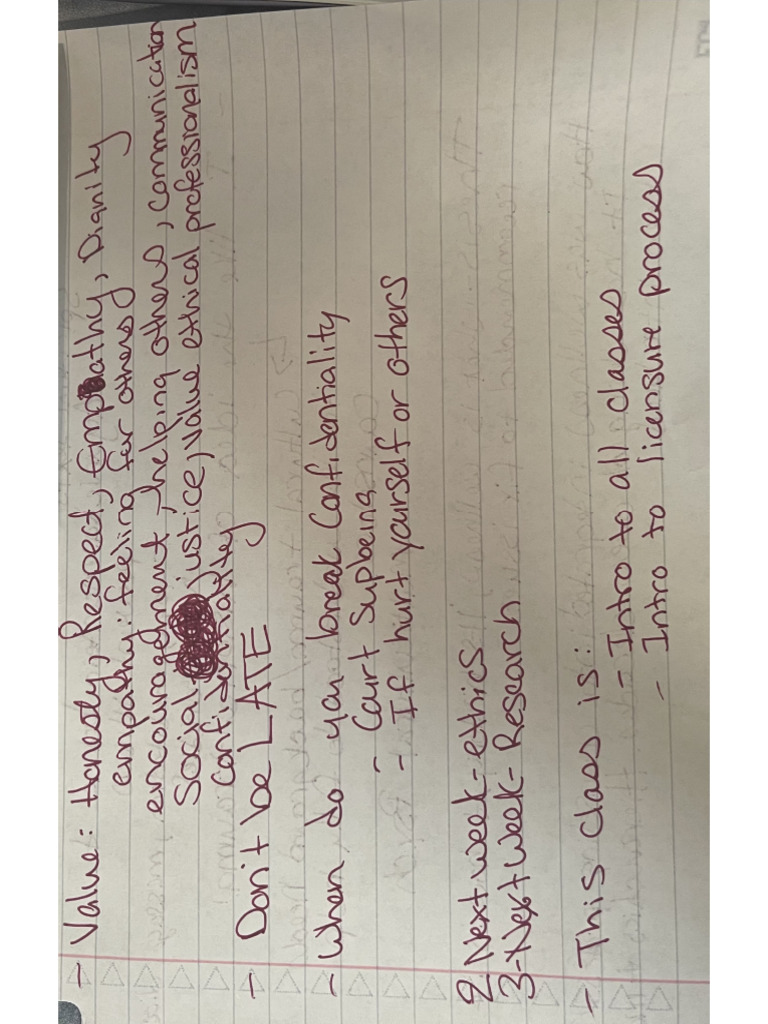 - Value: Honesty, Respect, Empathy, Dignity
empathy: feeling for others
encouragement, helping others, communication
Social justice, value ethical professionalism
confidentiality
- Don't be LATE
- When do you break Confidentiality
- Court Supbeing
- If hurt yourself or others
2 Next week - ethics
3- Next week - Research
- This class is:
- Intro to all classes
- Intro to licensure process